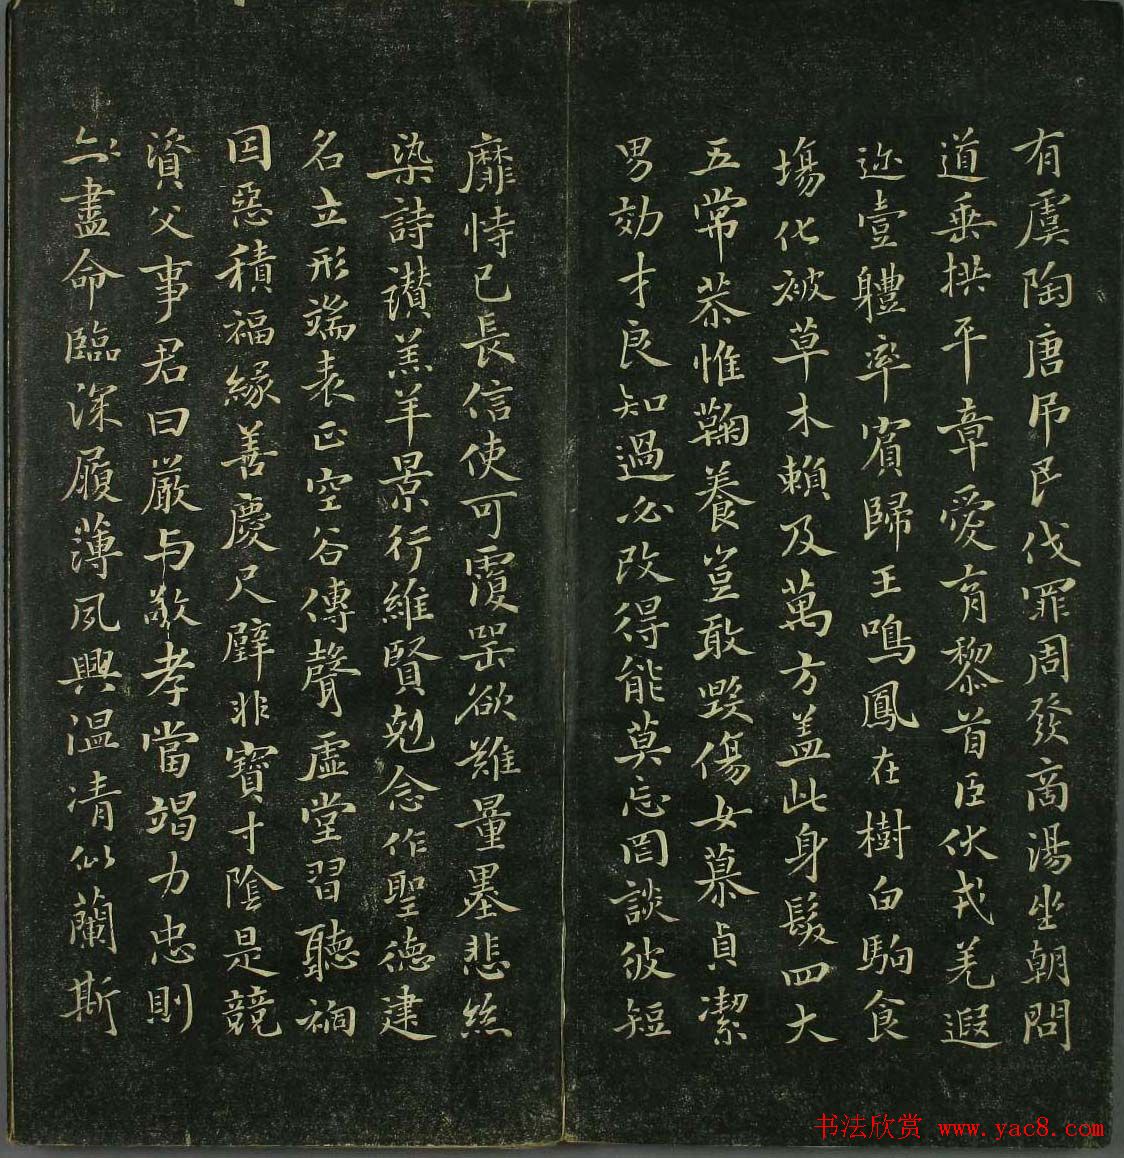 有虞陶唐吊民伐罪周發商湯坐朝問
道垂拱平章愛育黎首臣伏戎羌遐
迩壹軆率賓歸王鳴鳳在樹白駒食
場化被草木賴及萬方盖此身髮四大
五常恭惟鞠養豈敢毀傷女慕貞潔
男効才良知過必改得能莫忘罔談彼短
靡恃己長信使可覆器欲難量墨悲絲
染詩讚羔羊景行維賢剋念作聖德建
名立形端表正空谷傳聲虛堂習聽禍
因惡積福緣善慶尺璧非寶寸陰是競
資父事君曰嚴与敬孝當竭力忠則
盡命臨深履薄夙興溫凊似蘭斯
书法欣赏 www.yac8.com